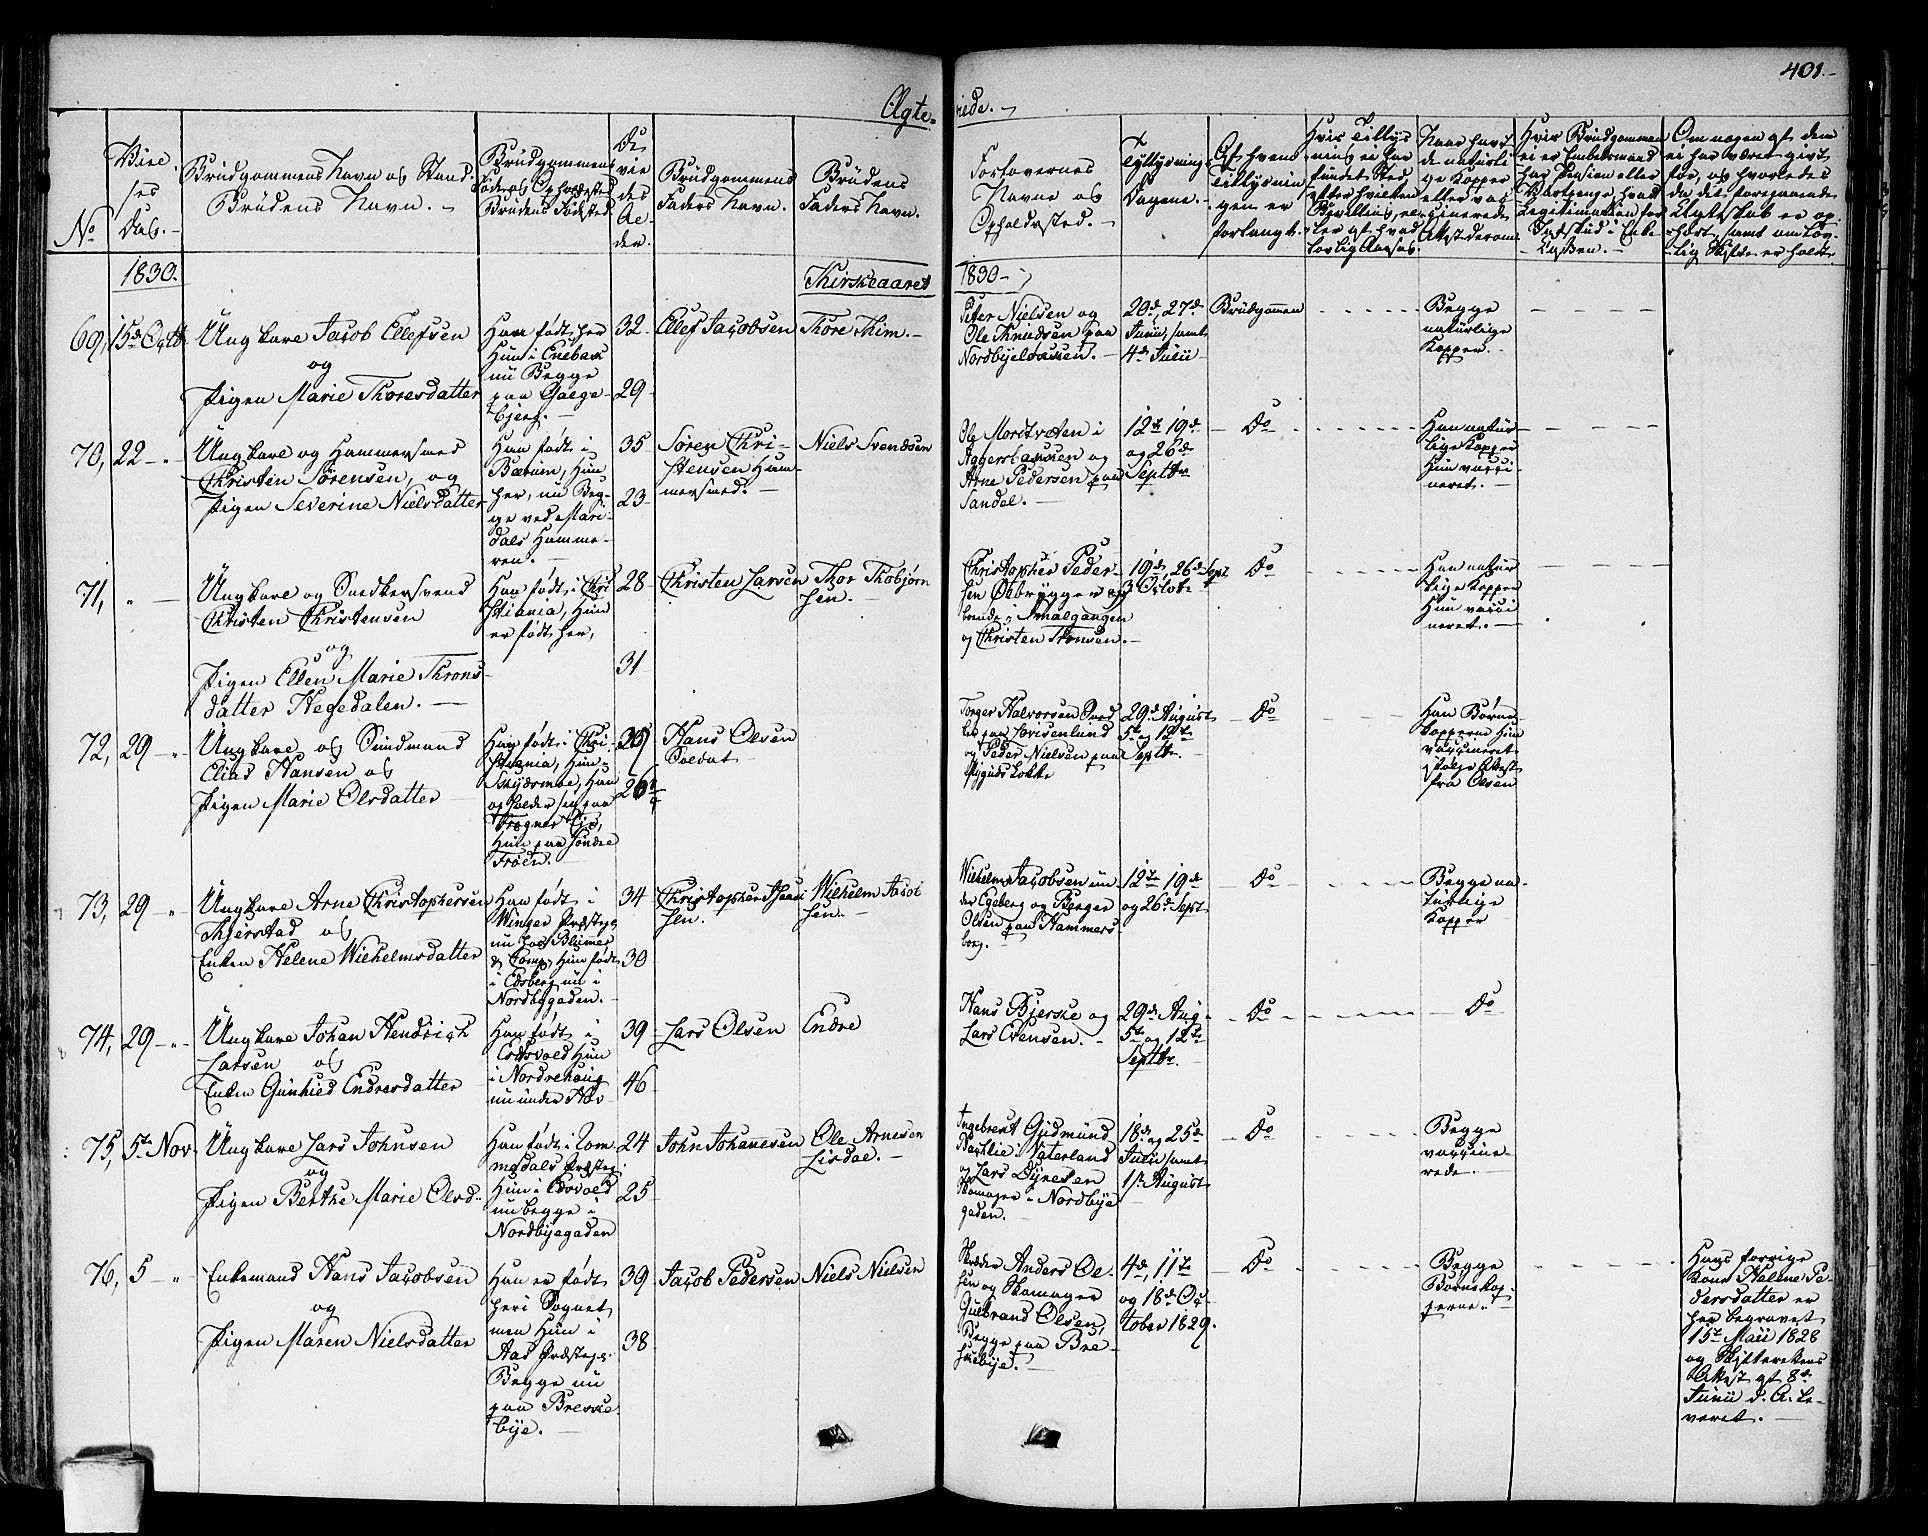 401.
Ægte-
viede.
No
Vielses
Dag.
Brudgommens Navn og Stand.
Brudens Navn.
Brudgommens
Føde og Opholdssted
Brudens Fødested
De
vie
des
Al-
der.
Brudgommens
Faders Navn.
Brudens
Faders Navn.
Forlovernes
Navne og
Opholdssted.
Tyllysnings
Dagene.
Af hvem
Tillysnin
gen er
forlangt.
Hvis Tillys
ning ei har
fundet Sted
efter hvilken
Bevilling, el
ler af hvad
lovlig Aarsag
Naar havt
de naturli
ge Kopper
eller vac
cinerede
Attesterom
Hvis Brudgommen
ei er Embedsmand
har Pension eller
Vartpenge, hvad
Legitimation for
Indskud i Enke
Cassen.
Om nogen af dem
ei har været gift
før, og hvorledes
da det foregaaende
Ægteskab er op
hørt, samt om lov
lig Skifte er holdt
1830.
Kirkeaaret
1830
69, 15d Octb
Ungkare Jacob Ellefsen
og
Pigen Marie Thoresdatter
Han født her
Hun i Enebak
nu Begge
paa Galge-
bjerg.
32
29
Ellef Jacobsen
Thore Thim.
Peter Nielsen og
Ole Knudsen paa
Nordbyeløkken.
20d, 27d
Junii, samt
4d Julii
Brudgommen
Begge
naturlige
Kopper.
70, 22
Ungkare og Hammersmed
Christen Sørensen, og
Pigen Severine Nielsdatter
Han født i
Bærum, Hun
her, nu Beg-
ge ved Mari-
dals Hamme-
ren.
35
23
Søren Chri-
stensen Ham-
mersmed.
Niels Svendsen
Ole Moritveten i
Aggersbakken og
Arne Pedersen paa
Sandel.
12te 19d
og 26d
Septbr
Do
Han natur
lige Kopper
Hun vacci
neret.
71,
Ungkare og Snedkersvend
Christen Christensen
og
Pigen Ellen Marie Throns-
datter Hegedalen.
Han født i Chri
stiania, Hun
er født her,
28
31
Christen Larsen
Thor Thobjørn
sen.
Christopher Peder-
sen Ølbrygger og
boende i Smalgangen
og Christen Thomsen.
19d, 26d Sept
3 Octobr
Do
Han natur
lige Kopper
Hun vacci
neret.
72, 29
Ungkare og Sømand
Elias Hansen og
Pigen Marie Olsdatter
Han født i Chri-
stiania, Hun
Skydsmoe, Han
opholder sig paa
Frogner Eje,
Hun paa Søndre
Frøen.
26
Hans Olsen
Soldat
Torger Halvorsen Sned
ker paa Lovisenlund
og Peder Nielsen paa
Løkke
29d August
5te og 12te
Septbr.
Do
Han Børne
kopperne Hun
vaccineret
ifølge Attest
fra Olsen
73, 29
Ungkare Arne Christophersen
Thjerstad og
Enken Helene Wilhelmsdatter
Han født i
Winger Præstegj.
nu hos Blumer
& Comp, Hun født
i Edsberg nu i
Nordbygaden.
34
30
Christopher
sen.
Wilhelm Jacob
sen.
Wilhelm Jacobsen un-
der Egeberg og Berger
Olsen paa Hammers-
borg.
12te 19d
og 26d Sept
Do
Begge na-
turlige
Kopper
74, 29
Ungkare Johan Hendrich
Larsen og
Enken Gunhild Endresdatter
Han født i
Eidsvold Hun
i Nordrehoug
nu under Hov
39
46
Lars Olsen
Endre
Hans Bjerke og
Lars Evensen.
29d Aug
5te og 12te
Septbr.
Do
Do
75, 5te Nov.
Ungkare Lars Johnsen
og
Pigen Berthe Marie Olsd.
Han født i Rom
medals Præstegj.
Hun i Eidsvold
nu begge i
Nordbyegaden
24
25
John Johanesen
Ole Arnesen
Lisdal.
Ingebret Gudmund
Bachlie i Vaterland
og Lars Dynesen
Skomager i Nordbye
gaden.
18d og 25d
Julii samt
1st August
Do
Begge
vaccine-
rede.
76, 5
Enkemand Hans Jacobsen
og
Pigen Maren Nielsdatter
Han er født
heri Sognet
men Hun i
Aas Præstegj.
Begge nu
paa Breske-
bye.
39
38
Jacob Pedersen
Niels Nielsen
Skræder Anders Ol-
sen og Skomager
Gulbrand Olsen,
Begge paa Bre-
skebye.
4d, 11te
og 18d Oc-
tober 1829.
Do
Begge
Børnekop-
perne.
Hans forrige
Kone Helene Pe-
dersdatter er
her begravet
15te Maii 1828
og Skifterettens
Attest af 8d
Junii d. A. le-
veret.